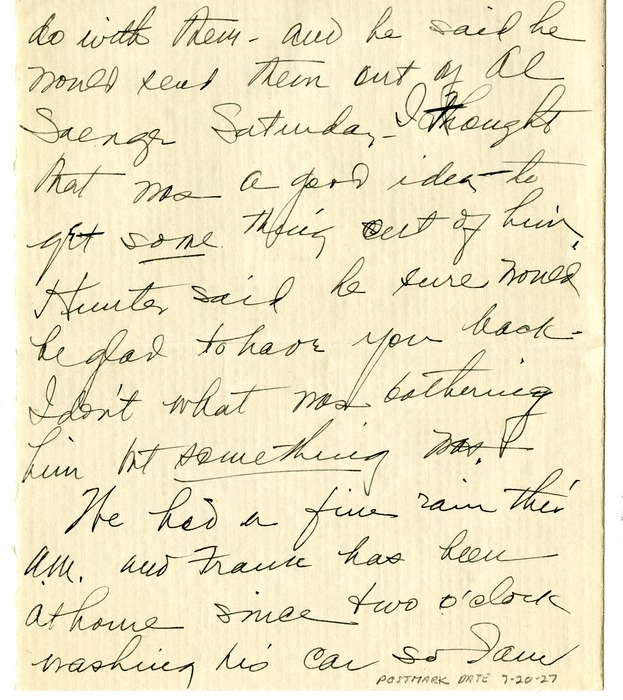 do with them - and he said he
would send them out by Al
Saenger Saturday - I thought
that was a good idea - to
get some thing out of him.
Hunter said he sure would
be glad to have you back -
I don't what was bothering
him but something was.
We had a fine rain this
a.m. and Frank has been
at home since two o'clock
washing his car so I am
POSTMARK DATE 7-20-27